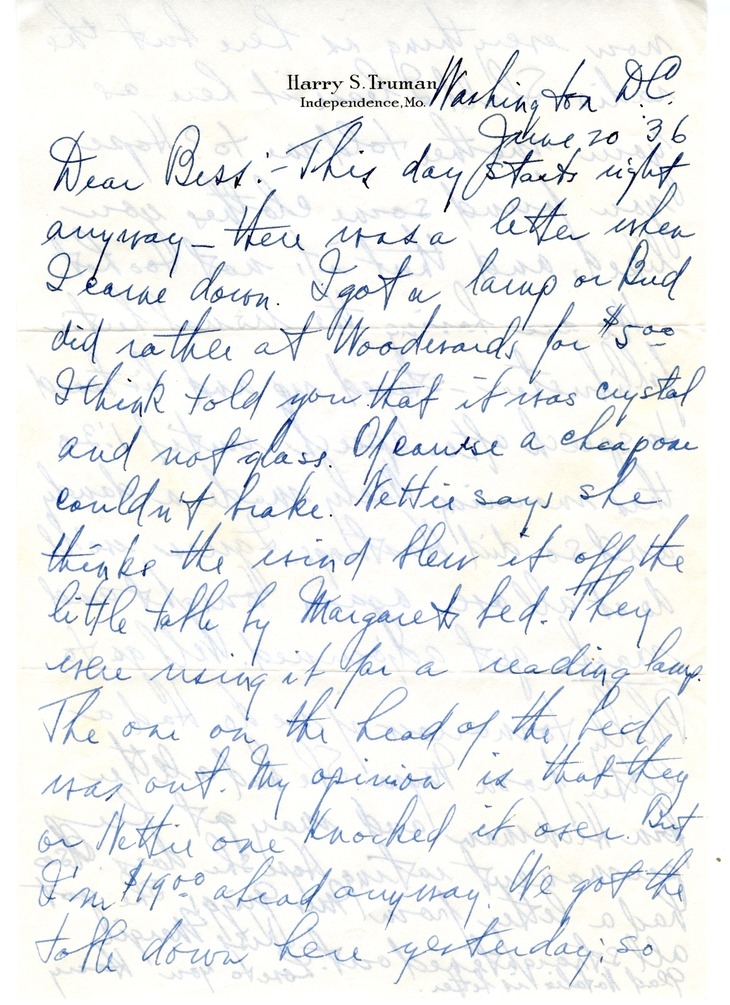 Harry S. Truman
Independence, Mo.
Washington D.C.
June 20 '36
Dear Bess:- This day starts right
anyway - there was a letter when
I came down. I got a lamp or Bud
did rather at Woodwards for $5.00
I think told you that it was crystal
and not glass. Of course a cheap one
couldn't brake. Nettie says she
thinks the wind blew it off the
little table by Margarets bed. They
were using it for a reading lamp.
The one on the head of the bed
was out. My opinion is that they
or Nettie one knocked it over. But
I'm $19.00 ahead anyway. We got the
table down here yesterday; so